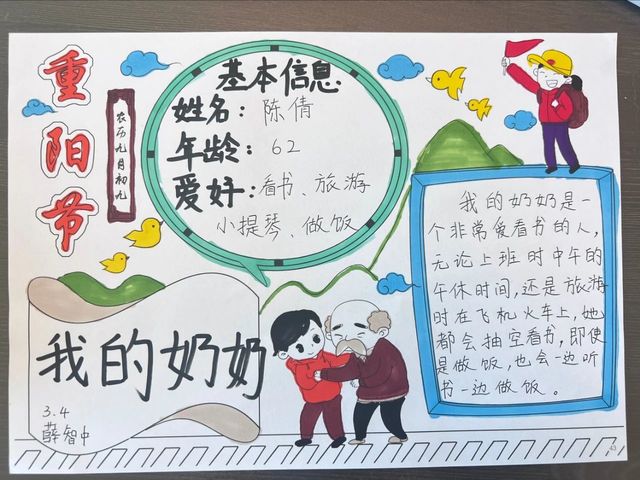 重阳节
农历九月初九
基本信息
姓名：陈倩
年龄：62
爱好：看书、旅游
小提琴、做饭
我的奶奶是一
个非常爱看书的人，
无论上班时中午的
午休时间，还是旅游
时在飞机火车上，她
都会抽空看书，即使
是做饭，也会一边听
书一边做饭。
我的奶奶
3.4
薛智中